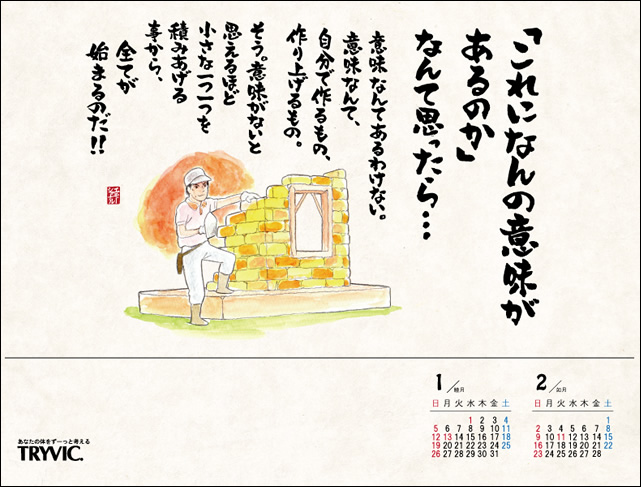 「これになんの意味が
あるのか」
なんて思ったら…
意味なんてあるわけない。
意味なんて、
自分で作るもの、
作り上げるもの。
そう。意味がないと
思えるほど
小さな一つ一つを
積みあげる
事から、
全てが
始まるのだ!!
1/睦月
日月火水木金土
1 2 3 4
5 6 7 8 9 10 11
12 13 14 15 16 17 18
19 20 21 22 23 24 25
26 27 28 29 30 31
2/如月
日月火水木金土
1
2 3 4 5 6 7 8
9 10 11 12 13 14 15
16 17 18 19 20 21 22
23 24 25 26 27 28
あなたの体をずーっと考える
TRYVIC.